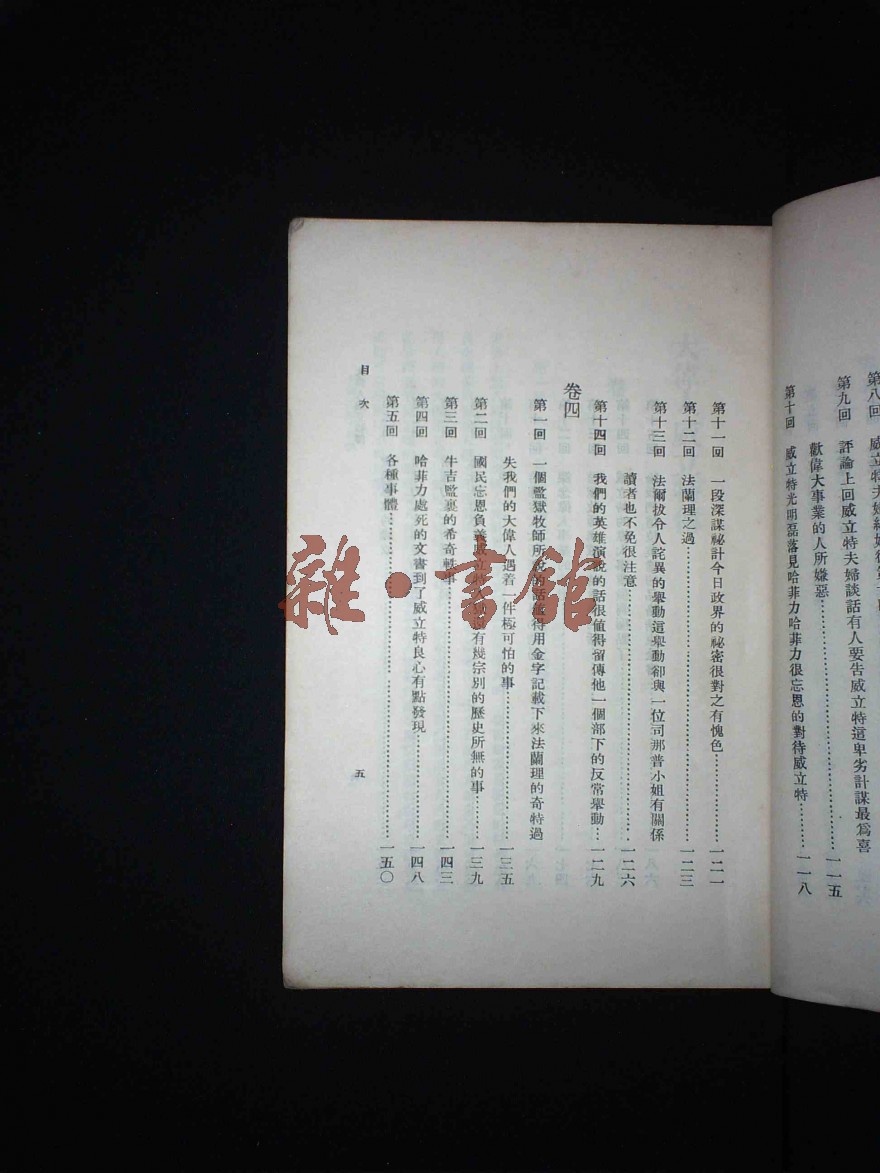 第八回　威立特夫婦
第九回　評論上回威立特夫婦談話有人要告威立特這卑劣計謀最爲喜
歡偉大事業的人所嫌惡……一一五
第十回　威立特光明磊落見哈菲力哈菲力很忘恩的對待威立特……一一八
第十一回　一段深謀祕計今日政界的祕密很對之有愧色……一二一
第十二回　法蘭理之過……一二三
第十三回　法爾拔令人詫異的舉動這舉動卻與一位司那普小姐有關係
讀者也不免很注意……一二六
第十四回　我們的英雄演說的話很值得留傳他一個部下的反常舉動……一二九
卷四
第一回　一個監獄牧師所說的話值得用金字記載下來法蘭理的奇特過
失我們的大偉人遇着一件極可怕的事……一三五
第二回　國民忘恩負義威立特入獄有幾宗別的歷史所無的事……一三九
第三回　牛吉監裏的希奇軼事……一四三
第四回　哈菲力處死的文書到了威立特良心有點發現……一四八
第五回　各種事體……一五〇
目次
五
雜·書館